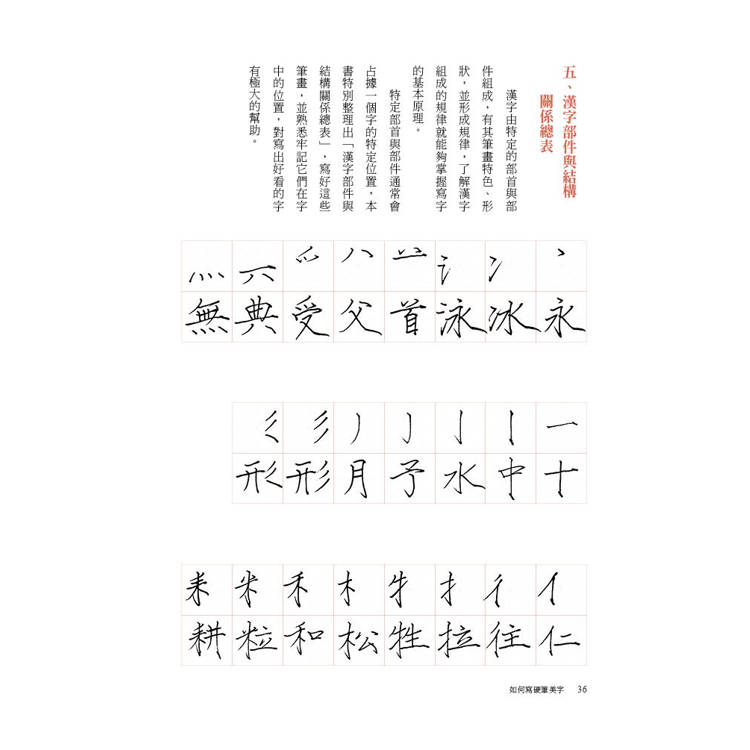 五、漢字部件與結構
關係總表
漢字由特定的部首與部
件組成，有其筆畫特色、形
狀，並形成規律，了解漢字
組成的規律就能夠掌握寫字
的基本原理。
特定部首與部件通常會
占據一個字的特定位置，本
書特別整理出「漢字部件與
結構關係總表」，寫好這些
筆畫，並熟悉牢記它們在字
中的位置，對寫出好看的字
有極大的幫助。
丶 冫 氵 䒑 八 爫 六 灬
永 冰 泳 首 父 受 典 無
一 丨 亅 亅 丿 彡
十 中 水 予 月 形 形
亻 彳 扌 牜 木 禾 米 耒
仁 往 拉 牲 松 和 粒 耕
如何寫硬筆美字 36